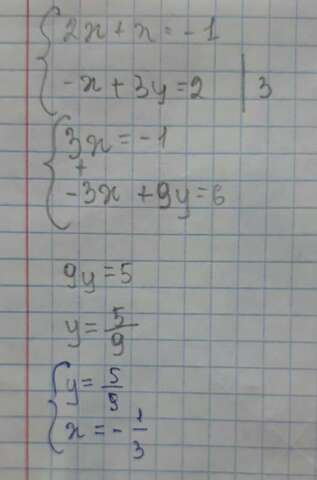 2x + x = -1
-x + 3y = 2 | 3
3x = -1
+
-3x + 9y = 6
9y = 5
y = 5/9
y = 5/9
x = - 1/3